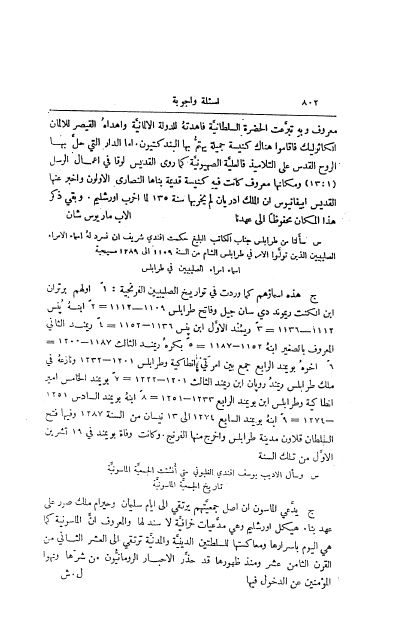 ٨٠٢ اسئلة واجوبة
معروف وبه تبرَّعت الحضرة السلطانيَّة فاهدتهُ للدولة الالمانيَّة واهداهُ القيصر للالمان
الكاثوليك فاقاموا هناك كنيسة جميلة يهتمُّ بها البندكتيون. اما الدار التي حلَّ بها
الروح القدس على التلاميذ فالعلّية الصهيونيَّة كما روى القديس لوقا في اعمال الرسل
(١٣:١) ومكانها معروف كانت فيه كنيسة قديمة بناها النصارى الاولون واخبر عنها
القديس ابيفانيوس ان الملك ادريان لم يخربها سنة ١٣٥ لما اخرب اورشليم. وبقي ذكر
هذا المكان محفوظًا الى عهدنا الاب ماريوس شان
س سألنا من طرابلس جناب الكاتب البليغ حكمت افندي شريف ان نسرد لهُ اسماء الامراء
الصليبيين الذين تولَّوا الامر في طرابلس الشام من السنة ١١٠٩ الى ١٢٨٩ مسيحية
اسماء امراء الصليبيين في طرابلس
ج هذه اسماؤهم كما وردت في تواريخ الصليبيين الفرنجية: ١ً اولهم برتران
ابن الكنت ريموند دي سان جيل وفاتح طرابلس ١١٠٩–١١١٢ = ٢ً ابنهُ پُنس
١١١٢–١١٣٦ = ٣ً ريمُند الاوَّل ابن پنس ١١٣٦–١١٥٢ = ٤ً ريمند الثاني
المعروف بالصغير ابنهُ ١١٥٢–١١٨٧ = ٥ً بكرهُ ريمند الثالث ١١٨٧–١٢٠٠ =
٦ً اخوهُ بويمند الرابع جمع بين امرتَي انطاكية وطرابلس ١٢٠١–١٢٣٢ ونازعهُ في
ملك طرابلس ريمندُ روبان ابن ريمند الثالث ١٢٠١–١٢٢٢ = ٧ً بويمند الخامس امير
انطاكية وطرابلس ابن بويمند الرابع ١٢٣٣–١٢٥١ = ٨ً بويمند السادس ١٢٥١
–١٢٧٤ = ٩ً ابنهُ بويمند السابع ١٢٧٤ الى ١٣ نيسان من السنة ١٢٨٧ وفيها فتح
السلطان قلاوون مدينة طرابلس واخرج منها الفرنج. وكانت وفاة بويمند في ١٩ تشرين
الاوَّل من تلك السنة
س وسأل الاديب يوسف افندي القليوبي متى أُنشئت الجمعيَّة الماسونيَّة
تاريخ الجمعيَّة الماسونيَّة
ج يدَّعي الماسون ان اصل جمعيتهم يرتقي الى ايام سليمان وحيرام ملك صور على
عهد بناء هيكل اورشليم وهي مدَّعيات خرافيَّة لا سند لها والمعروف انَّ الماسونية كما
هي اليوم باسرارها ومعاكستها للسلطتين الدينيَّة والمدنيَّة ترتقي الى العشر الثاني من
القرن الثامن عشر ومنذ ظهورها قد حذَّر الاحبار الرومانيُّون من شرّها ونهوا
المؤمنين عن الدخول فيها ل.ش